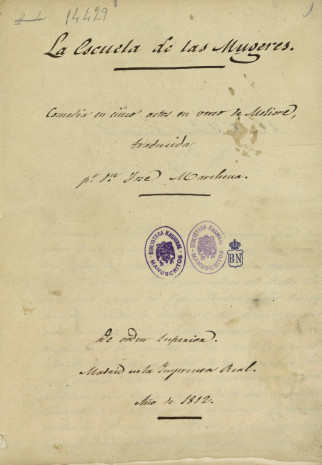 14429
1
La Escuela de las Mugeres.
Comedia en cinco actos en verso de Moliere,
traducida
pr. Dn. José Marchena.
BIBLIOTECA NACIONAL
MANUSCRITOS
BIBLIOTECA NACIONAL
MANUSCRITOS
BN
De orden superior.
Madrid en la Imprenta Real.
Año de 1812.